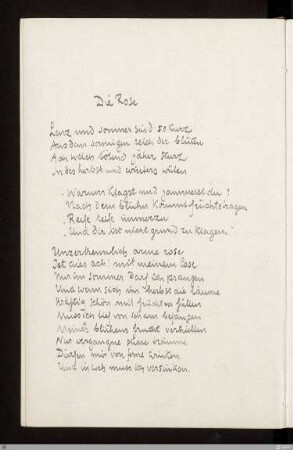 Die Rose
Lenz und sommer sind so kurz
Aus dem sonnigen reich der blüten
Ach welch tötend jäher sturz
In des herbst und winters wüten
„Warum klagst und jammerst du?
Nach dem blühn kommt früchte tragen
Reife reife immerzu
Und dir ist nicht grund zu klagen"
Unzertrennlich arme rose
Ist dies ach! mit meinem lose
Nur im sommer darf ich prangen
Und wann sich im herbst die bäume
Kräftig schön mit früchten füllen
Muss ich tief von scham befangen
Meines blühens frucht verhüllen
Nur vergangne süsse träume
Dürfen mir von ferne winken
Und in mich muss ich versinken.